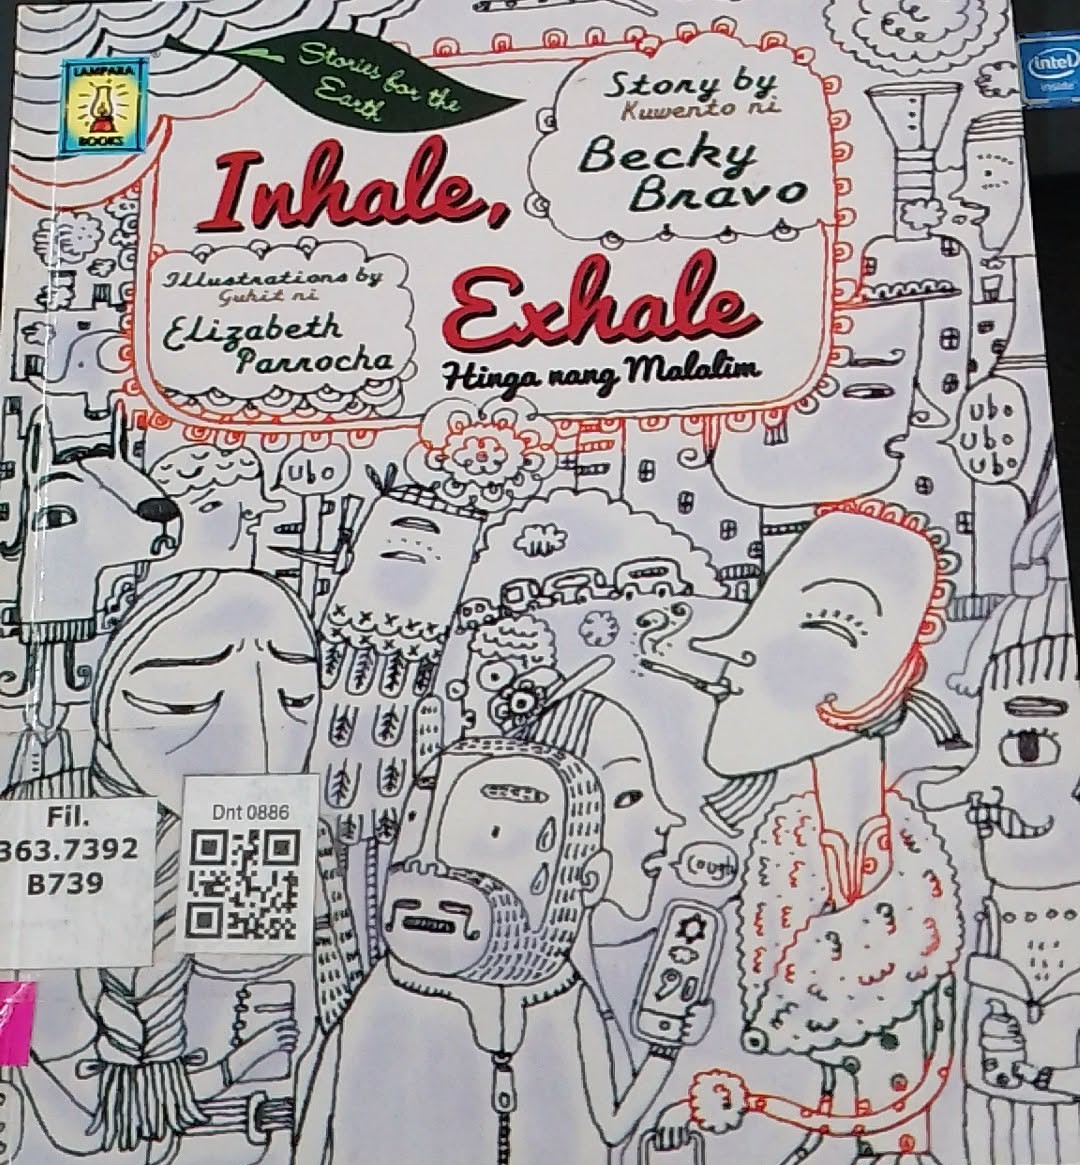 Stories for the
Earth
LAMPARA
BOOKS
intel
inside
Story by
Kuwento ni
Becky
Bravo
Inhale,
Illustrations by
Guhit ni
Elizabeth
Parrocha
Exhale
Hinga nang Malalim
ubo
ubo
ubo
ubo
cough
Fil.
363.7392
B739
Dnt 0886